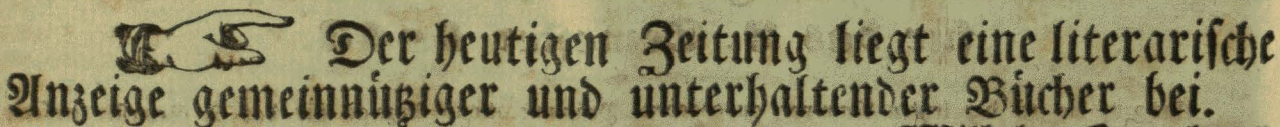 ☞ Der heutigen Zeitung liegt eine literariſche
Anzeige gemeinnütziger und unterhaltender Bücher bei.